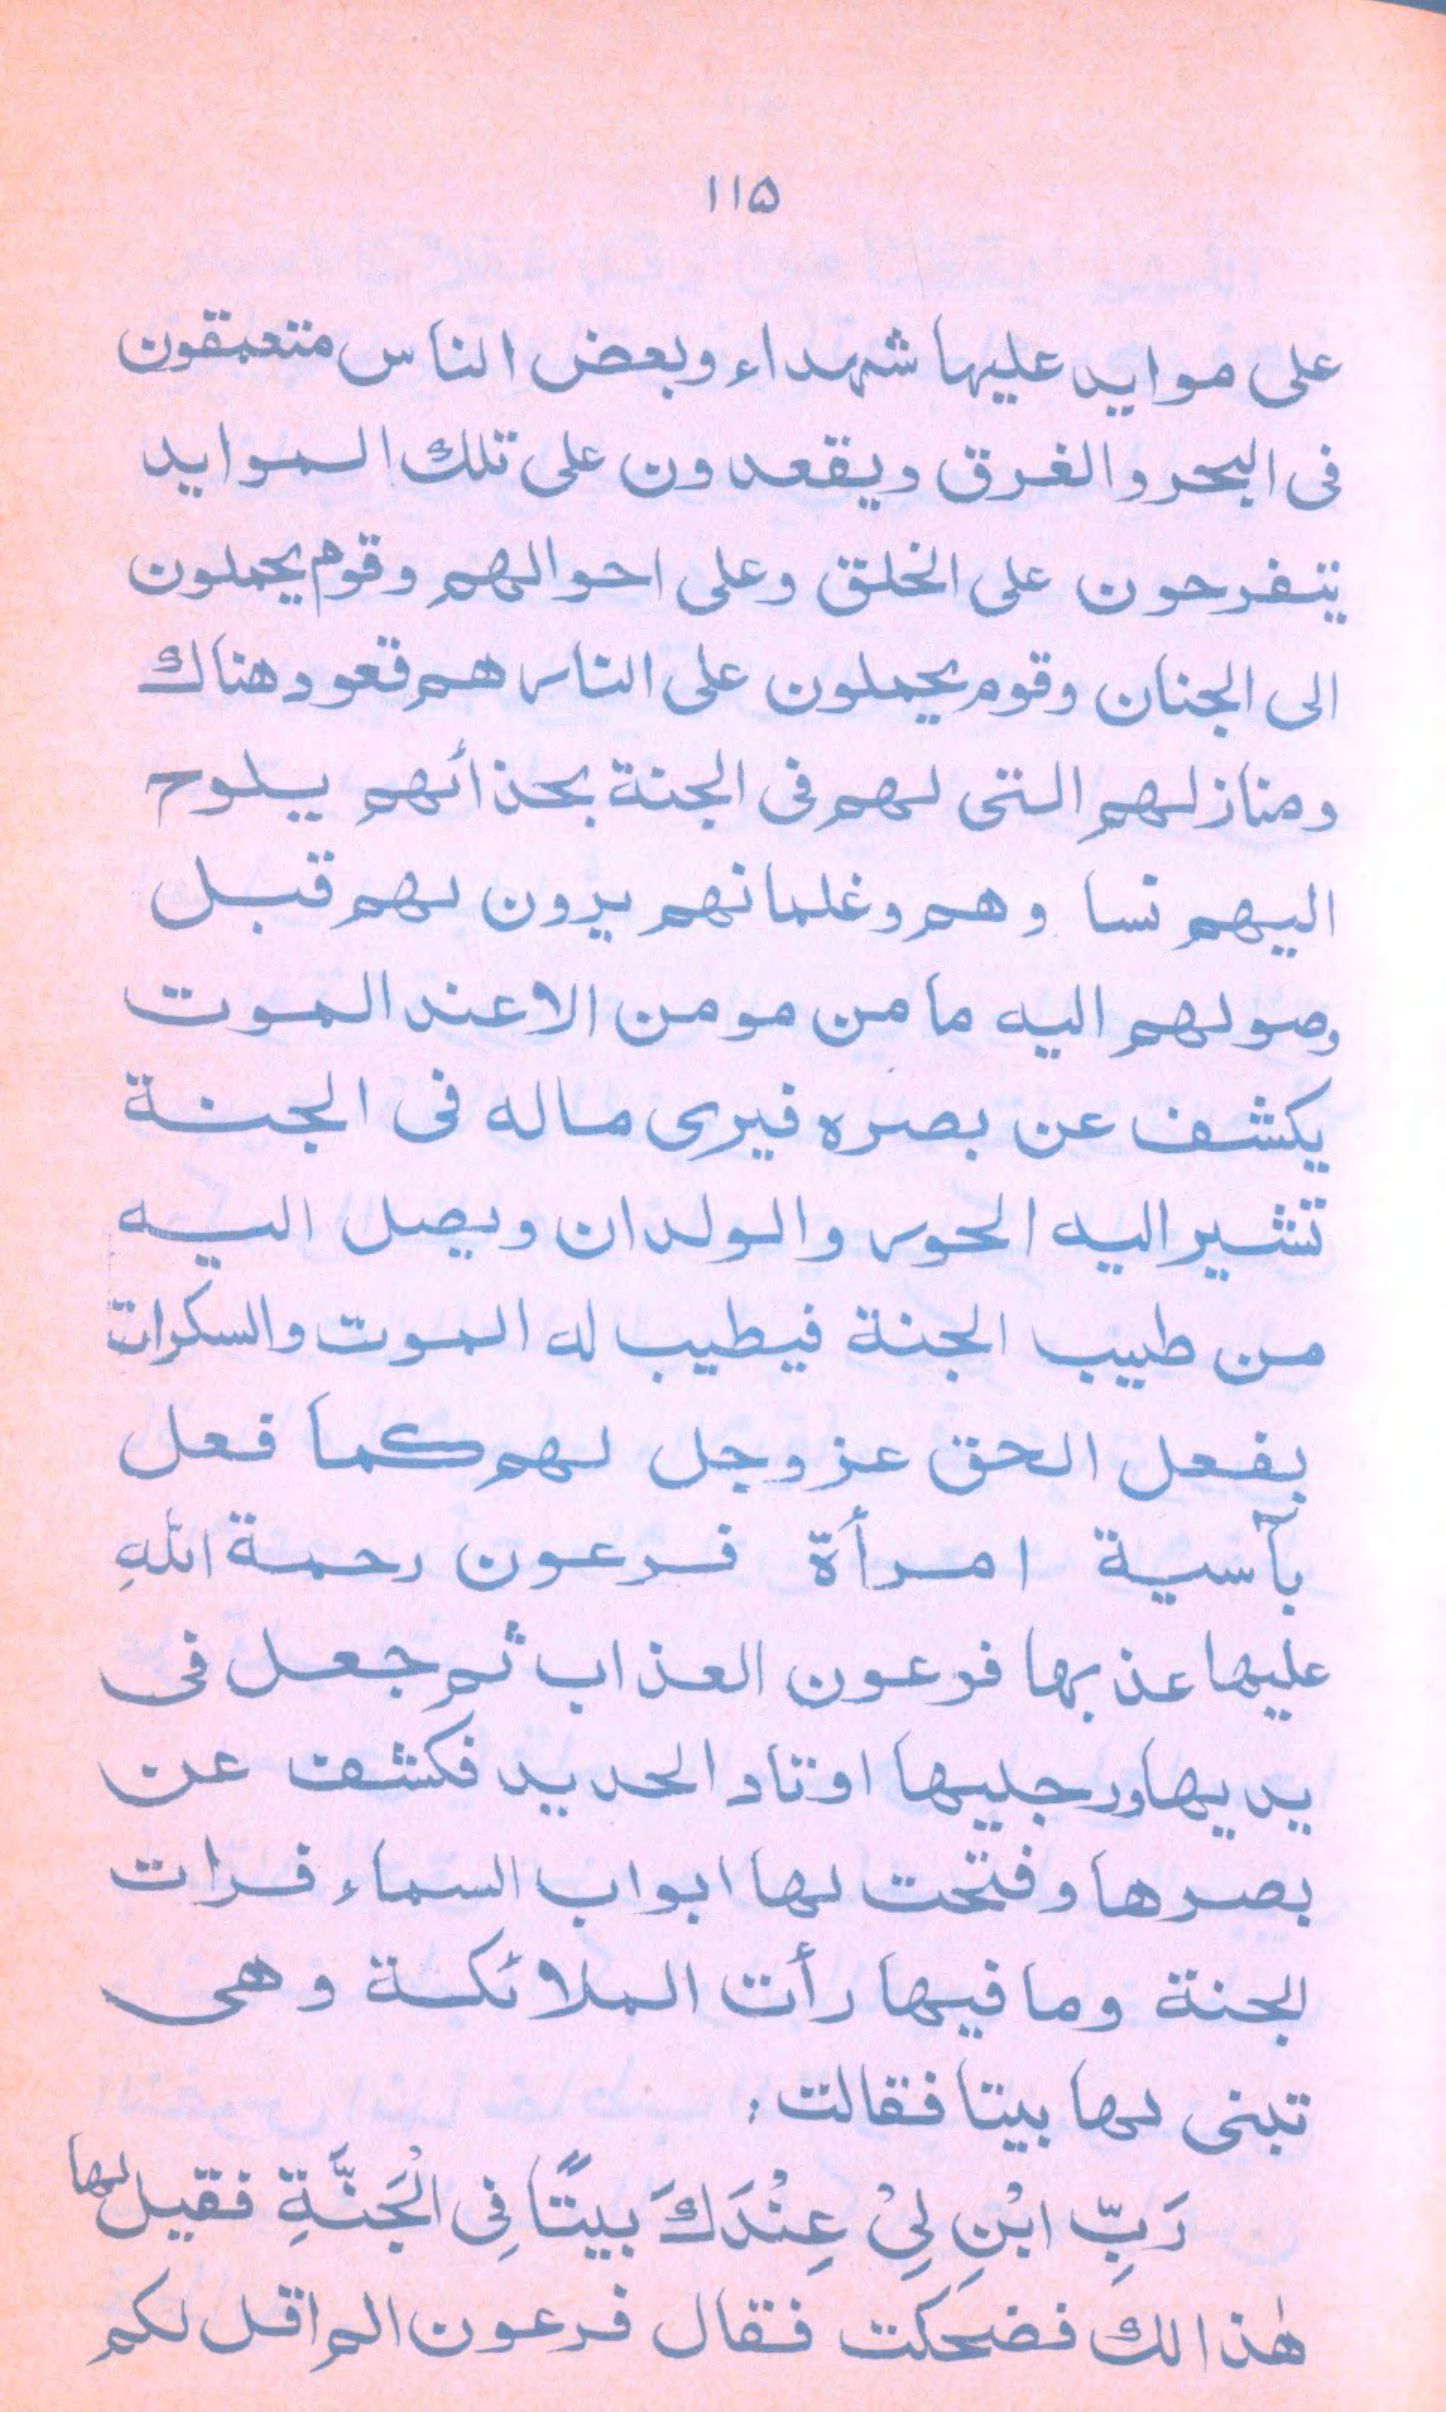 ۱۱۵
على موايد عليها شهداء وبعض الناس متعمقون
فى البحر والغرق ويقعدون على تلك الموايد
يتفرجون على الخلق وعلى احوالهم وقوم يحملون
الى الجنان وقوم يحملون على الناس هم قعود هناك
ومنازلهم التى لهم فى الجنة بحذأئهم يلوح
اليهم نسا وهم وغلمانهم يرون لهم قبل
وصولهم اليه مامن مومن الاعند الموت
يكشف عن بصره فيرى ماله فى الجنة
تشير اليه الحور والولدان ويصل اليه
من طيب الجنة فيطيب له الموت والسكرات
بفعل الحق عزوجل لهم كما فعل
بآسية امرأة فرعون رحمة اللهِ
عليها عذبها فرعون العذاب ثم جعل فى
يديها ورجليها اوتاد الحديد فكشف عن
بصرها وفتحت لها ابواب السماء فرات
لجنة وما فيها رأت الملائكة وهى
تبنى لها بيتا فقالت:
رَبِّ ابْنِ لِىْ عِنْدَكَ بيتًا فِى الْجَنَّةِ فقيل لها
هٰذا لك فضحكت فقال فرعون الم اقل لكم